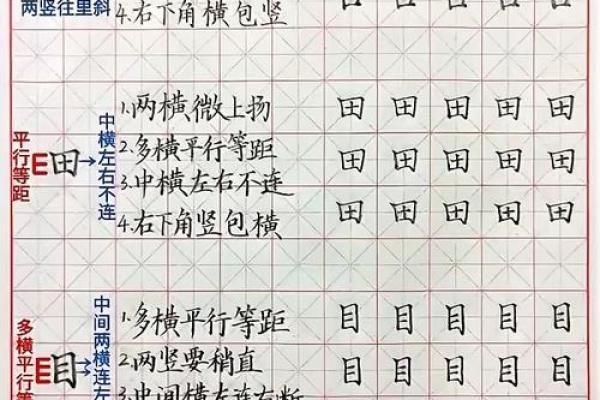 两竖往里斜
4.右下角横包竖
平行等距
田
中横左右不连
1.两横微上扬
2.多横平行等距
3.中横左右不连
4.右下角竖包横
田田田田田
田田田田田
田田田田田
多横平行等
目
中间两横连左
1.多横平行等距
2.两竖要稍直
3.中间横左连右断
目目目目目
目目目目目